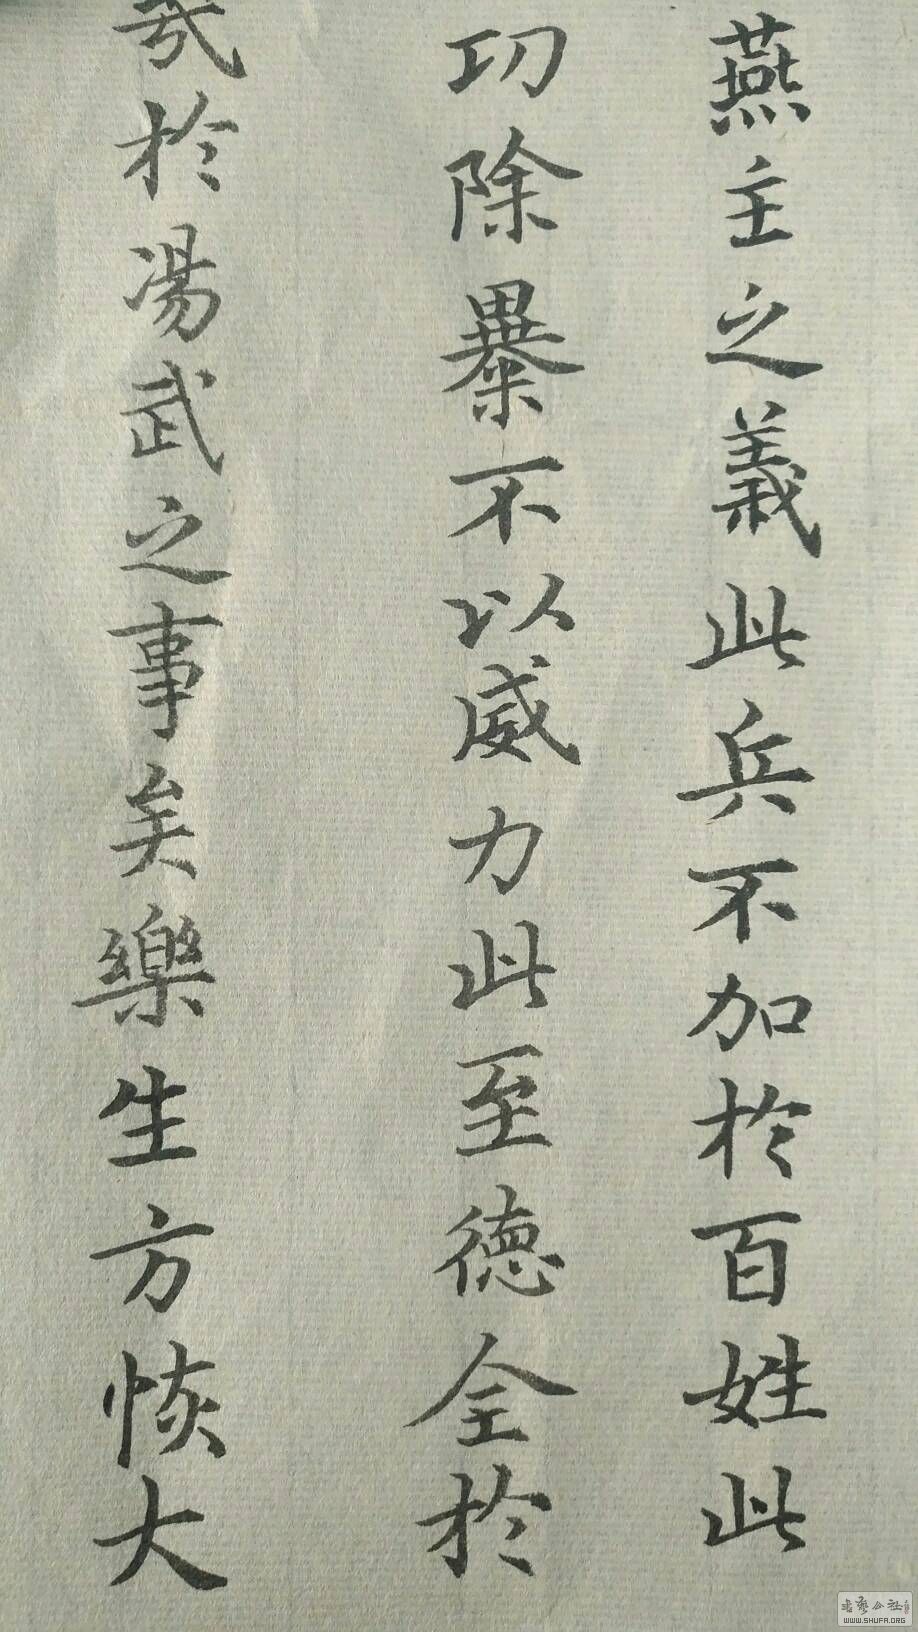 燕主之義此兵不加於百姓此
功除暴不以威力此至德全於
於湯武之事矣樂生方恢大
书艺公社
WWW.SHUFA.ORG